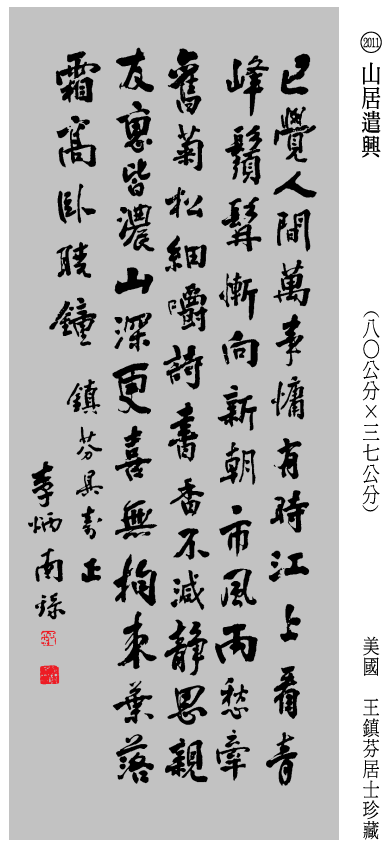 2011 山居遣興 (八〇公分×三七公分) 美國 王鎮芬居士珍藏
已覺人間萬事慵有時江上看青
峰鬚髯慚向新朝市風雨愁牽
舊菊松細嚼詩書香不減靜思親
友裏皆濃山深更喜無拘束葉落
霜高臥聽鐘 鎮芬具壽正
李炳南錄